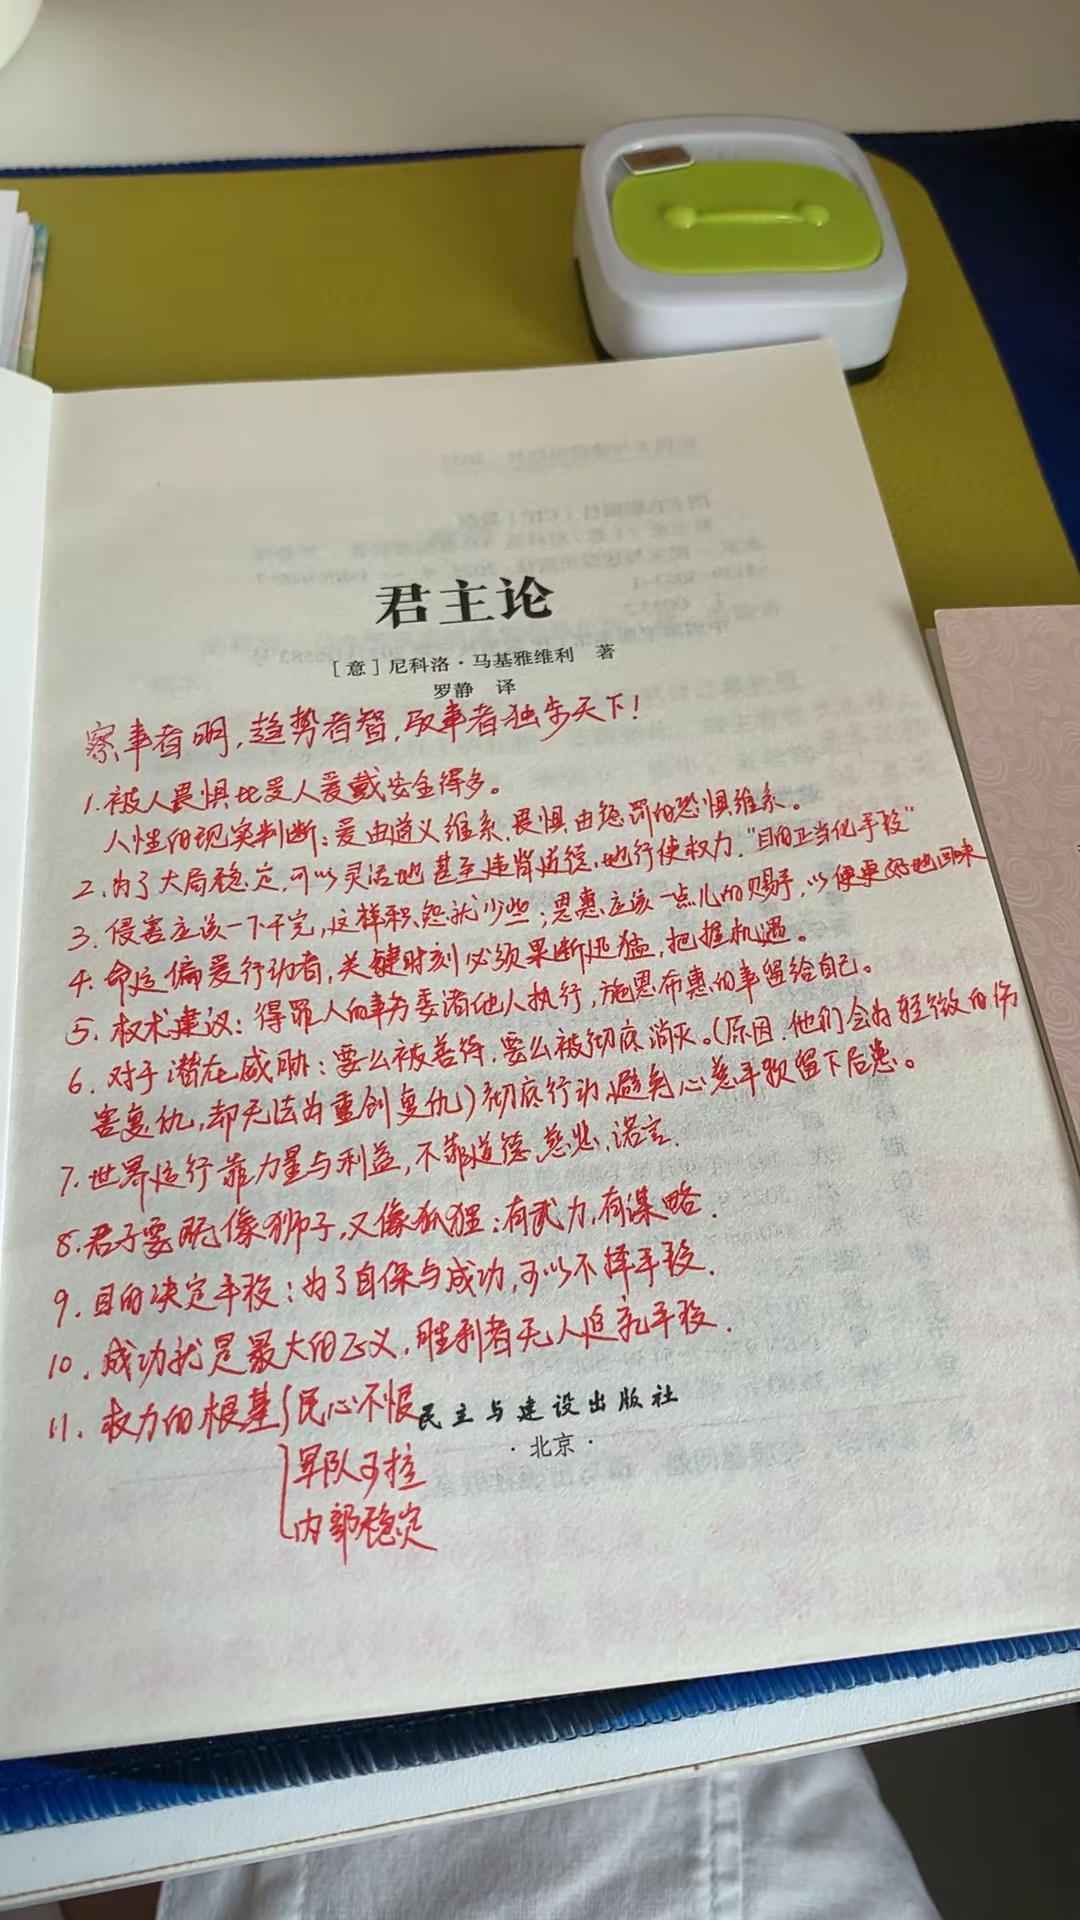 君主论
[意]尼科洛·马基雅维利 著
罗静 译
察事者明，趋势者智，驭事者独步天下！
1.被人畏惧比受人爱戴安全得多。
人性的现实判断：爱由道义维系，畏惧由惩罚的恐惧维系。
2.为了大局稳定，可以灵活地甚至违背道德地行使权力，"目的正当化手段"
3.侵害应该一下干完，这样积怨就少些；恩惠应该一点儿的赐予，以便更好地回味
4.命运偏爱行动者，关键时刻必须果断迅猛，把握机遇。
5.权术建议：得罪人的事务委诸他人执行，施恩布惠的事留给自己。
6.对于潜在威胁：要么被善待，要么被彻底消灭。(原因：他们会为轻微的伤
害复仇，却无法为重创复仇)彻底行动，避免心慈手软留下后患。
7.世界运行靠力量与利益，不靠道德、慈悲、诺言.
8.君子要既像狮子，又像狐狸：有武力，有谋略.
9.目的决定手段：为了自保与成功，可以不择手段.
10.成功就是最大的正义，胜利者无人追究手段.
11.权力的根基{民心不恨
民主与建设出版社
·北京·
军队可控
内部稳定